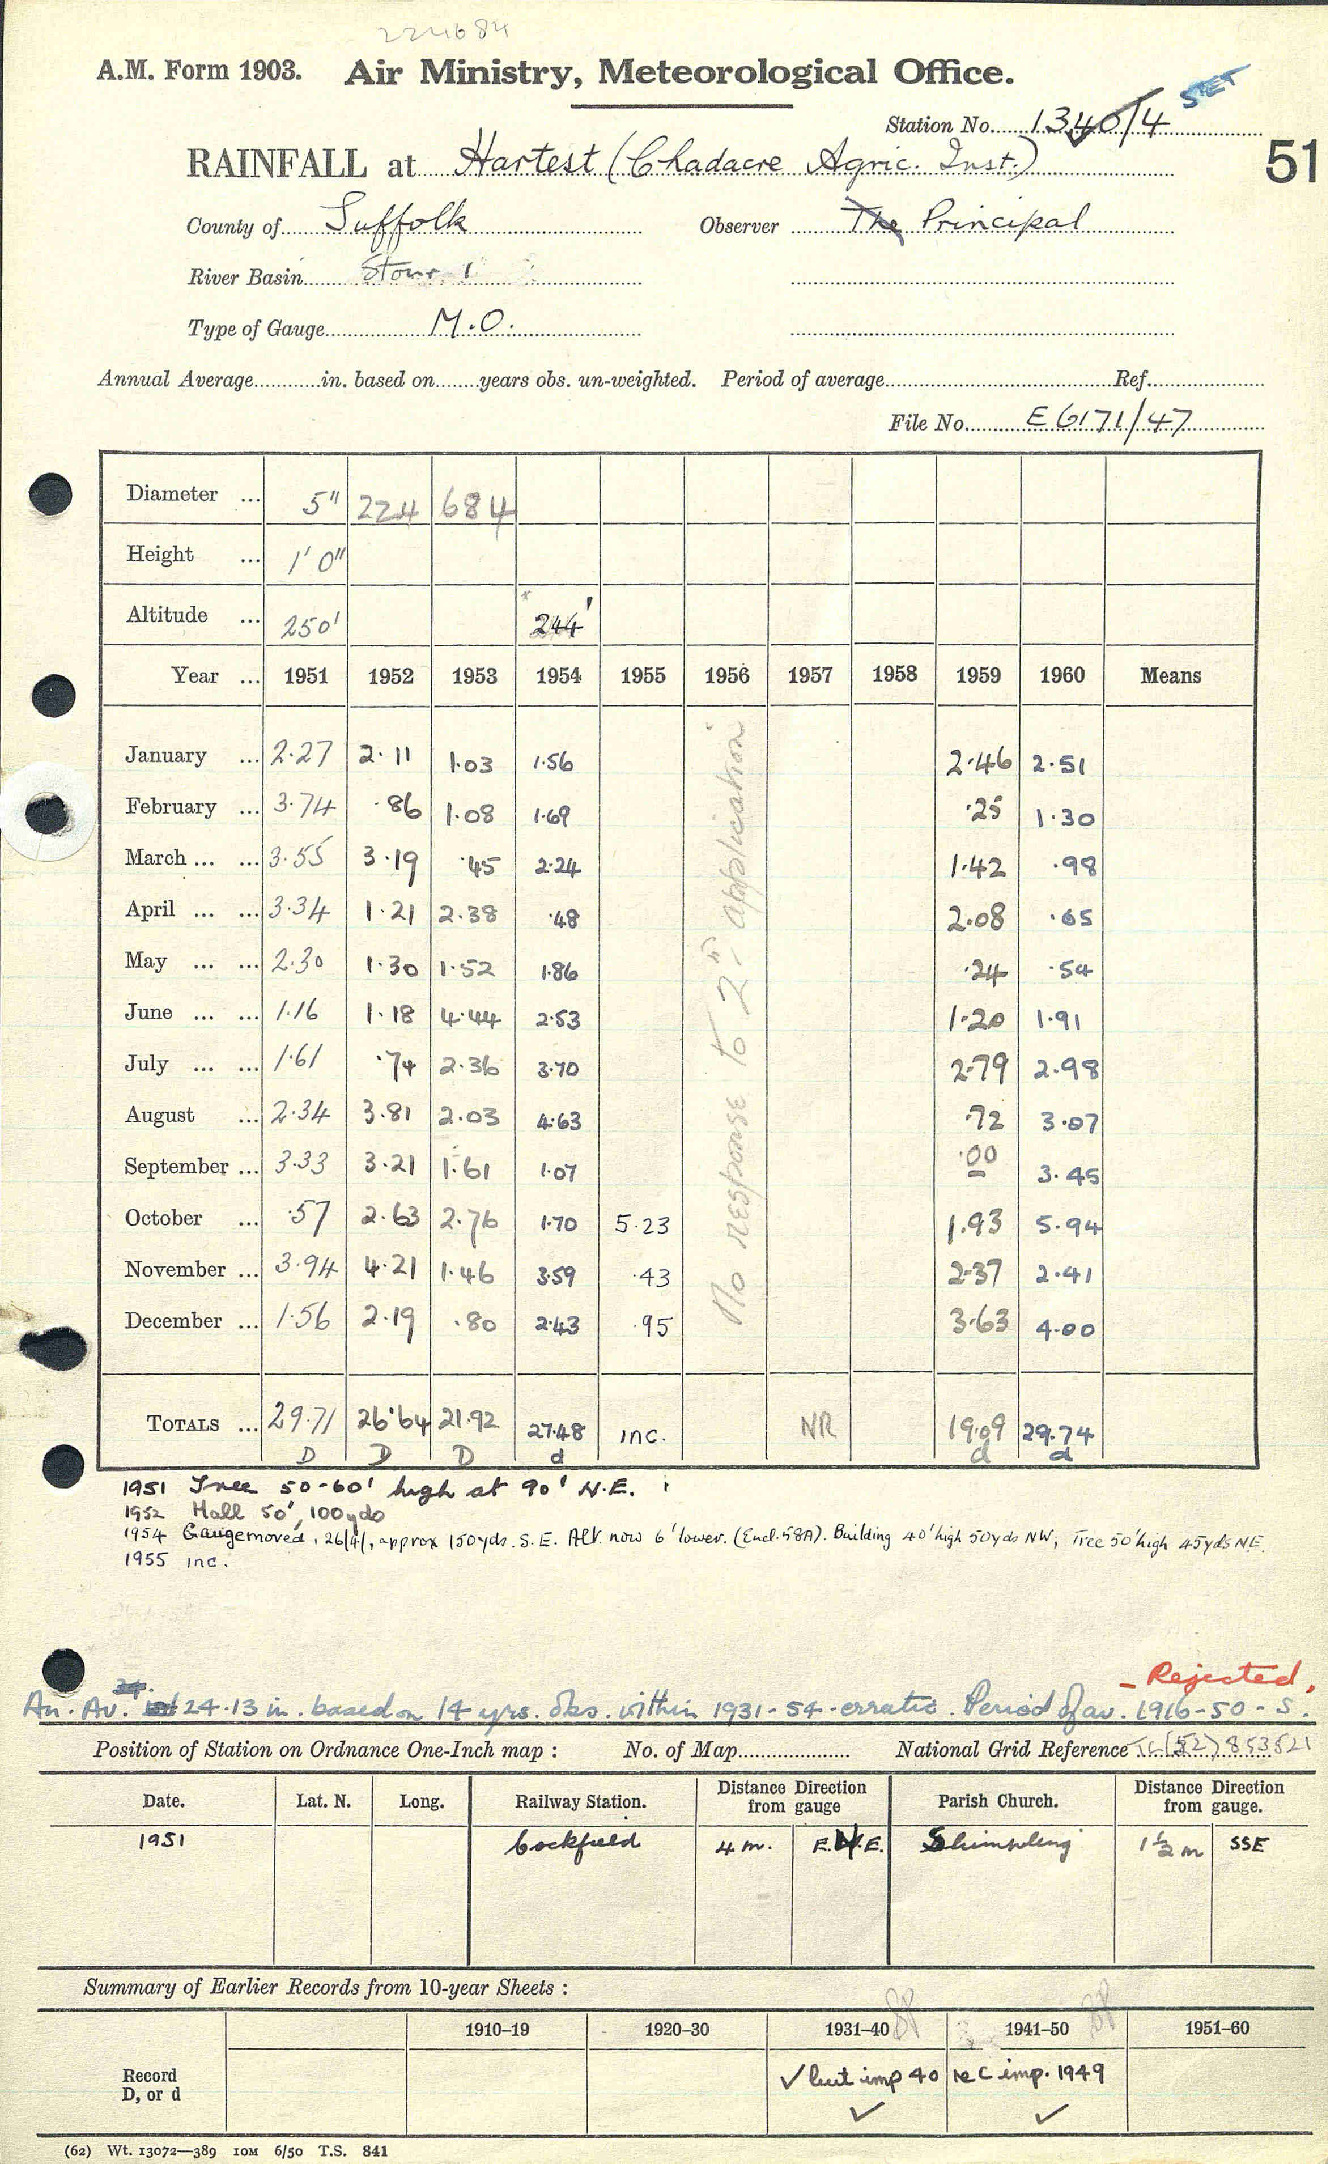 224684
A.M. Form 1903. Air Ministry, Meteorological Office.
Station No. 1340/4 STET
RAINFALL at Hartest (Chadacre Agric. Inst.) 51
County of Suffolk Observer The Principal
River Basin Stour 1
Type of Gauge M.O.
Annual Average in. based on years obs. un-weighted. Period of average Ref.
File No. E6171/47
Diameter ... 5" 224 684
Height ... 1' 0"
Altitude ... 250' * 244'
Year ... 1951 1952 1953 1954 1955 1956 1957 1958 1959 1960 Means
January ... 2.27 2.11 1.03 1.56 2.46 2.51
February ... 3.74 .86 1.08 1.69 .25 1.30
March ... ... 3.55 3.19 .45 2.24 1.42 .98
April ... ... 3.34 1.21 2.38 .48 2.08 .65
May ... ... 2.30 1.30 1.52 1.86 .24 .54
June ... ... 1.16 1.18 4.44 2.53 1.20 1.91
July ... ... 1.61 .74 2.36 3.70 2.79 2.98
August ... 2.34 3.81 2.03 4.63 .72 3.07
September ... 3.33 3.21 1.61 1.07 .00 3.45
October ... .57 2.63 2.76 1.70 5.23 1.93 5.94
November ... 3.94 4.21 1.46 3.59 .43 2.37 2.41
December ... 1.56 2.19 .80 2.43 .95 3.63 4.00
No response to 2nd application
TOTALS ... 29.71 26.64 21.92 27.48 inc. NR 19.09 29.74
D D D d d d
1951 Tree 50-60' high at 90' N.E.
1952 Hall 50', 100yds
1954 Gauge moved, 26/4/, approx 150yds. S.E. Alt. now 6' lower. (Encl. 58A). Building 40' high 50yds NW, Tree 50' high 45yds NE.
1955 inc.
- Rejected.
An. Av. 24.13 in. based on 14 yrs. obs. within 1931-54 - erratic. Period of av. 1916-50 - S.
Position of Station on Ordnance One-Inch map : No. of Map National Grid Reference TL(52) 853521
Date. Lat. N. Long. Railway Station. Distance Direction from gauge Parish Church. Distance Direction from gauge.
1951 Cockfield 4 m. E.N.E. Shimpling 1½ m SSE
Summary of Earlier Records from 10-year Sheets :
1910–19 1920–30 1931–40 1941–50 1951–60
Record D, or d ✓ but imp 40 rec imp. 1949
✓ ✓
(62) Wt. 13072—389 10M 6/50 T.S. 841